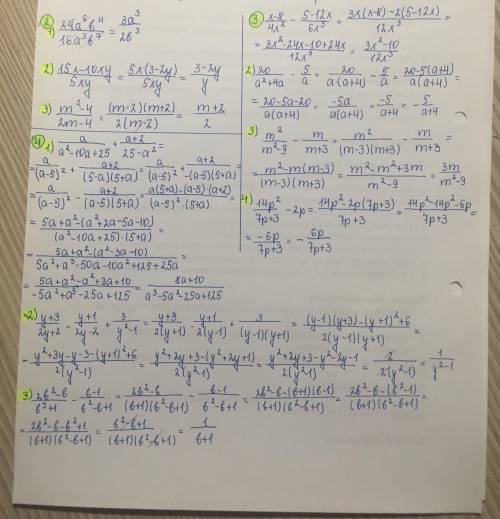 2)
1) 24a⁶b⁴/16a³b⁷ = 3a³/2b³
2) 15x-10xy/5xy = 5x(3-2y)/5xy = 3-2y/y
3) m²-4/2m-4 = (m-2)(m+2)/2(m-2) = m+2/2
4) 1) a/a²-10a+25 + a+2/25-a² =
= a/(a-5)² + a+2/(5-a)(5+a) = a/(a-5)² + a+2/-(a-5)(5+a) =
= a/(a-5)² - a+2/(a-5)(5+a) = a(5+a)-(a-5)·(a+2)/(a-5)²·(5+a) =
= 5a+a²-(a²+2a-5a-10)/(a²-10a+25)·(5+a) =
= 5a+a²-(a²-3a-10)/5a²+a³-50a-10a²+125+25a =
= 5a+a²-a²+3a+10/-5a²+a³-25a+125 = 8a+10/a³-5a²-25a+125
3)
1) x-8/4x² - 5-12x/6x³ = 3x(x-8)-2(5-12x)/12x³ =
= 3x²-24x-10+24x/12x³ = 3x²-10/12x³
2) 20/a²+4a - 5/a = 20/a(a+4) - 5/a = 20-5(a+4)/a(a+4) =
= 20-5a-20/a(a+4) = -5a/a(a+4) = -5/a+4 = - 5/a+4
3) m²/m²-9 - m/m+3 = m²/(m-3)(m+3) - m/m+3 =
= m²-m(m-3)/(m-3)(m+3) = m²-m²+3m/m²-9 = 3m/m²-9
4) 14p²/7p+3 - 2p = 14p²-2p(7p+3)/7p+3 = 14p²-14p²-6p/7p+3 =
= -6p/7p+3 = - 6p/7p+3
2) y+3/2y+2 - y+1/2y-2 + 3/y²-1 = y+3/2(y+1) - y+1/2(y-1) + 3/(y-1)(y+1) = (y-1)(y+3)-(y+1)²+6/2(y-1)(y+1) =
= y²+3y-y-3-(y+1)²+6/2(y²-1) = y²+2y+3-(y²+2y+1)/2(y²-1) = y²+2y+3-y²-2y-1/2(y²-1) = 2/2(y²-1) = 1/y²-1
3) 2b²-b/b³+1 - b-1/b²-b+1 = 2b²-b/(b+1)(b²-b+1) - b-1/b²-b+1 = 2b²-b-(b+1)(b-1)/(b+1)(b²-b+1) = 2b²-b-(b²-1)/(b+1)(b²-b+1) =
= 2b²-b-b²+1/(b+1)(b²-b+1) = b²-b+1/(b+1)(b²-b+1) = 1/b+1